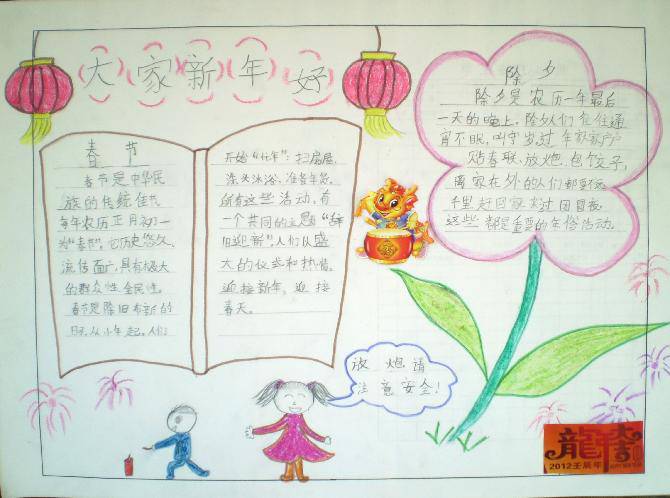 大家新年好
春 节
春节是中华民
族的传统佳节
每年农历正月初一
为"春节"。它历史悠久、
流传面广,具有极大
的群众性、全民性。
春节是除旧布新的
日子,从小年起。人们
开始"忙年":扫房屋、
洗头沐浴、准备年货,
所有这些活动,有
一个共同的主题"辞
旧迎新"人们以盛
大的仪式和热情。
迎接新年,迎接
春天。
除 夕
除夕是农历一年最后
一天的晚上,除夕人们往往通
宵不眠,叫守岁,过年家家户户
贴春联、放炮、包饺子,
离家在外的人们都要
千里赶回家来过团圆夜
这些都是重要的年俗活动。
放 炮 请
注意安全!
龍
2012壬辰年